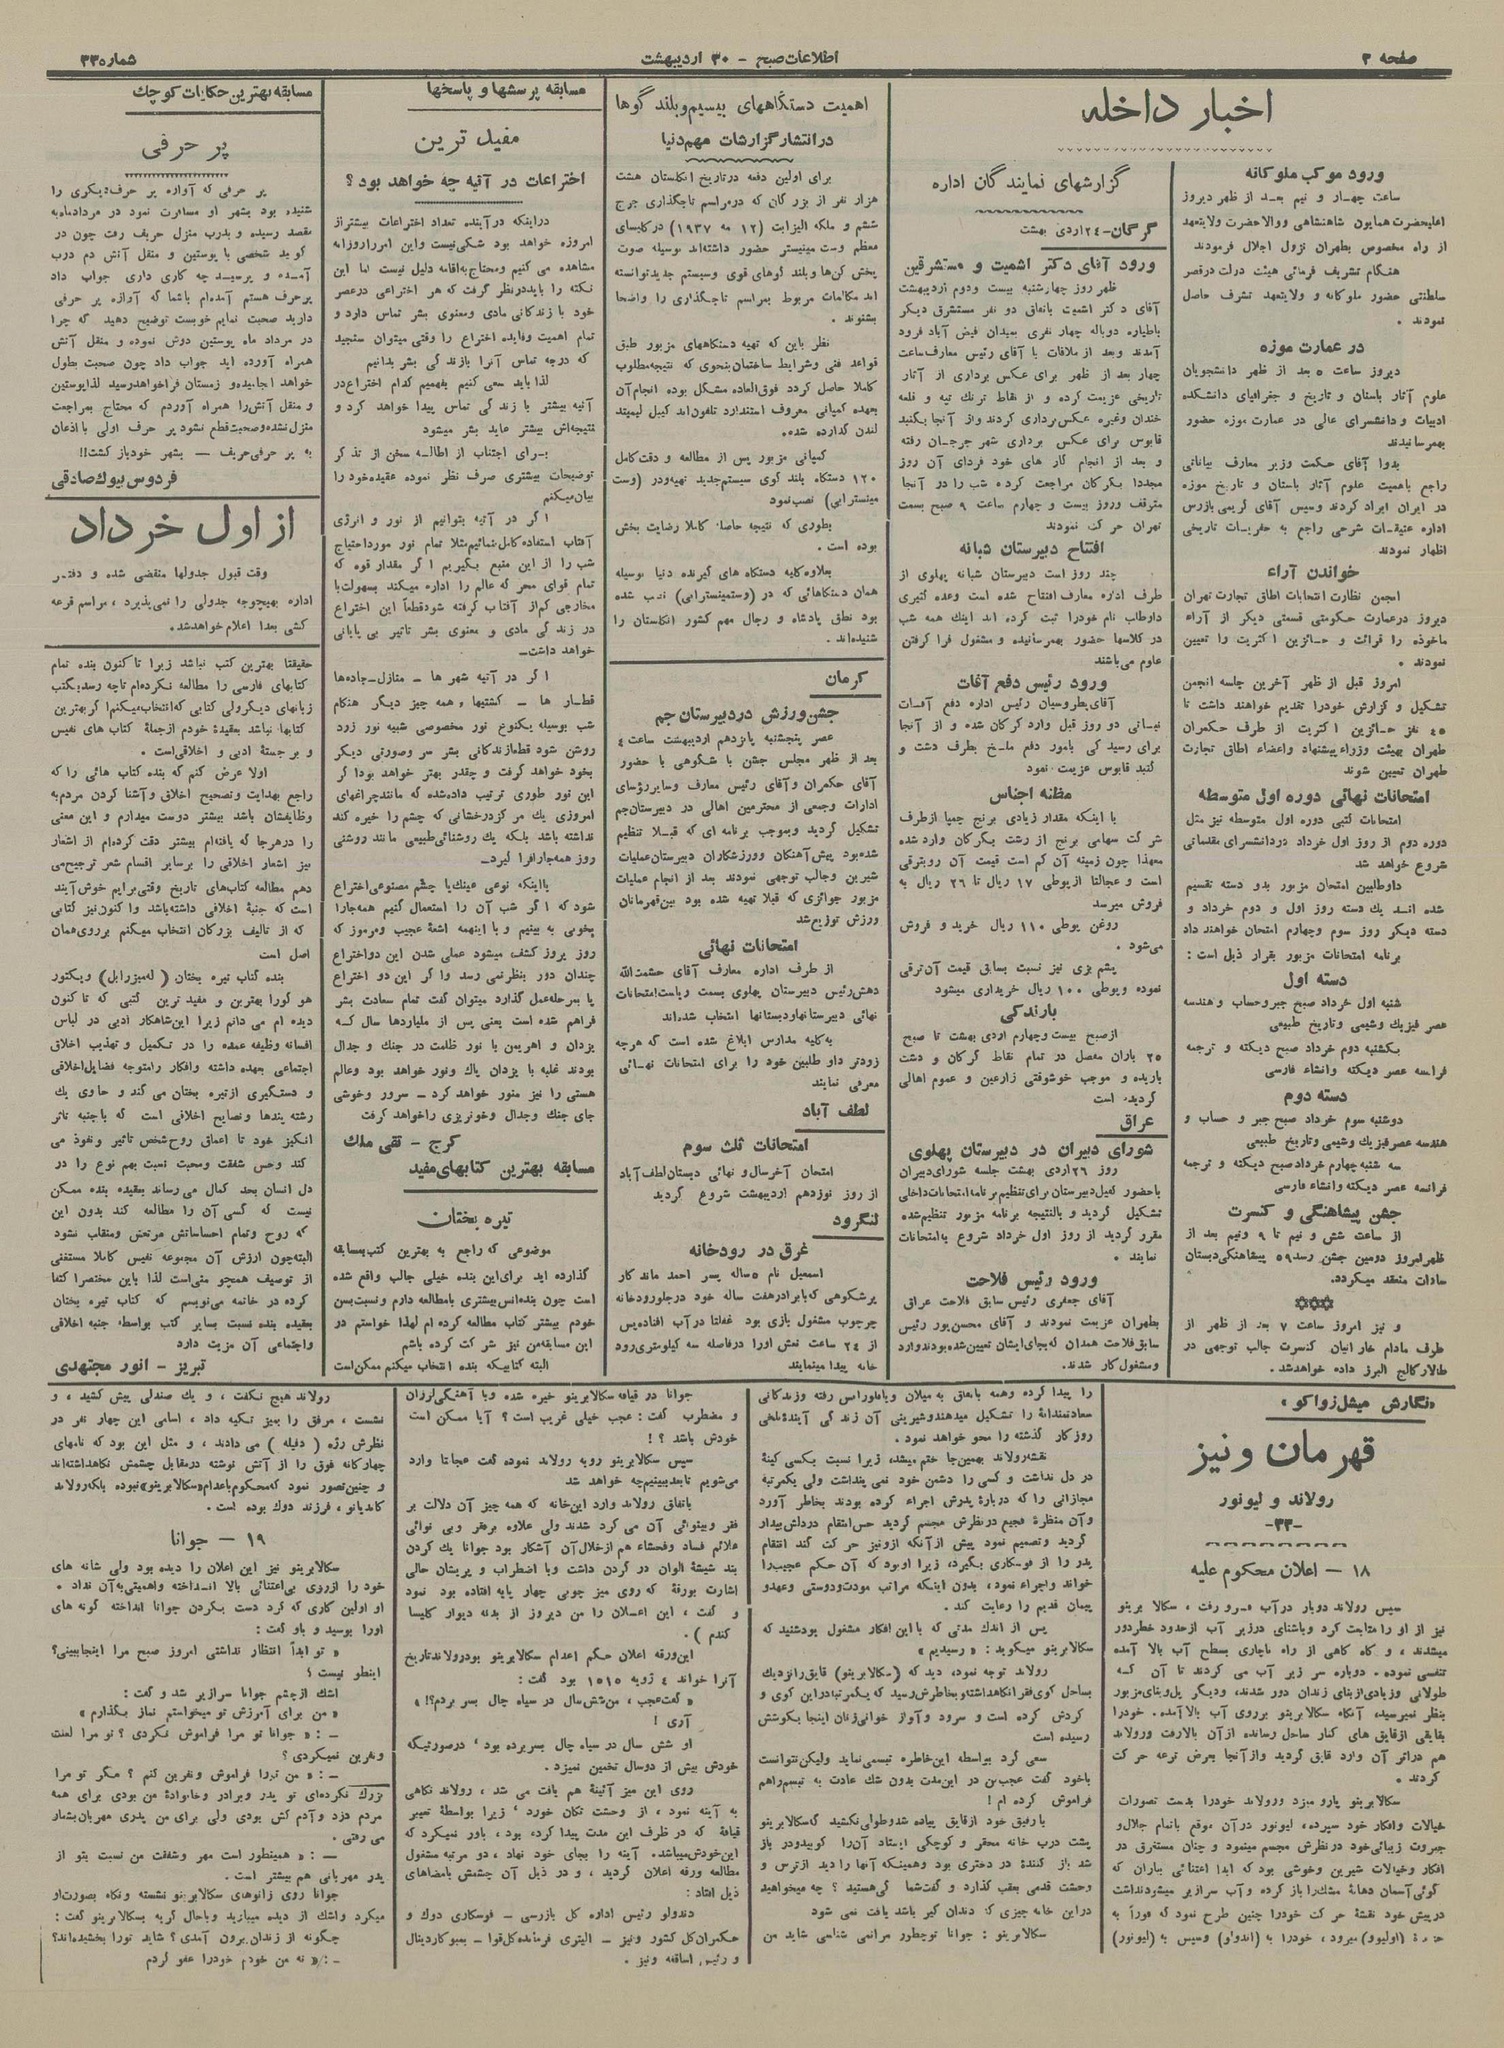 صفحه ۲
اطلاعات صبح - ۳۰ اردیبهشت
شماره ۳۳۰
اخبار داخله
ورود موکب ملوکانه
ساعت چهار و نیم بعد از ظهر دیروز
اعلیحضرت همایون شاهنشاهی و والاحضرت ولایتعهد
از راه مخصوص بطهران نزول اجلال فرمودند
هنگام تشریف فرمائی هیئت دولت در قصر
سلطنتی حضور ملوکانه و ولایتعهد تشرف حاصل
نمودند .
در عمارت موزه
دیروز ساعت ۵ بعد از ظهر دانشجویان
علوم آثار باستان و تاریخ و جغرافیای دانشکده
ادبیات و دانشسرای عالی در عمارت موزه حضور
بهمرسانیدند
بدوا آقای حکمت وزیر معارف بیاناتی
راجع باهمیت علوم آثار باستان و تاریخ موزه
در ایران ایراد کردند وسپس آقای کریمی بازرس
اداره عتیقات شرحی راجع به حفریات تاریخی
اظهار نمودند
خواندن آراء
انجمن نظارت انتخابات اطاق تجارت تهران
دیروز در عمارت حکومتی قسمتی دیگر از آراء
ماخوذه را قرائت و حائزین اکثریت را تعیین
نمودند .
امروز قبل از ظهر آخرین جلسه انجمن
تشکیل و گزارش خودرا تقدیم خواهند داشت تا
۴۵ نفر حائزین اکثریت از طرف حکمران
طهران بهیئت وزراء پیشنهاد واعضاء اطاق تجارت
طهران تعیین شوند
امتحانات نهائی دوره اول متوسطه
امتحانات کتبی دوره اول متوسطه نیز مثل
دوره دوم از روز اول خرداد در دانشسرای مقدماتی
شروع خواهد شد
داوطلبین امتحان مزبور بدو دسته تقسیم
شده اند یك دسته روز اول و دوم خرداد و
دسته دیگر روز سوم وچهارم امتحان خواهند داد
برنامه امتحانات مزبور بقرار ذیل است :
دسته اول
شنبه اول خرداد صبح جبر وحساب و هندسه
عصر فیزیك وشیمی وتاریخ طبیعی
یکشنبه دوم خرداد صبح دیکته و ترجمه
فرانسه عصر دیکته وانشاء فارسی
دسته دوم
دوشنبه سوم خرداد صبح جبر و حساب و
هندسه عصر فیزیك وشیمی وتاریخ طبیعی
سه شنبه چهارم خرداد صبح دیکته و ترجمه
فرانسه عصر دیکته وانشاء فارسی
جشن پیشاهنگی و کنسرت
از ساعت شش و نیم تا ۹ ونیم بعد از
ظهر امروز دومین جشن رسد ۵۹ پیشاهنگی دبستان
سادات منعقد میگردد.
و نیز امروز ساعت ۷ بعد از ظهر از
طرف مادام خارانیان کنسرت جالب توجهی در
طالار کالج البرز داده خواهدشد.
گزارشهای نمایندگان اداره
گرگان - ۲۴ اردی بهشت
ورود آقای دکتر اشمیت و مستشرقین
ظهر روز چهارشنبه بیست ودوم اردیبهشت
آقای دکتر اشمیت باتفاق دو نفر مستشرق دیگر
باطیاره دوباله چهار نفری بمیدان فیض آباد فرود
آمدند وبعد از ملاقات با آقای رئیس معارف ساعت
چهار بعد از ظهر برای عکس برداری از آثار
تاریخی عزیمت کرده و از نقاط ترنك تپه و قلعه
خندان وغیره عکس برداری کردند واز آنجا بگنبد
قابوس برای عکس برداری شهر جرجان رفته
و بعد از انجام کار های خود فردای آن روز
مجددا بگرگان مراجعت کرده شب را در آنجا
متوقف وروز بیست و چهارم ساعت ۹ صبح بسمت
تهران حرکت نمودند
افتتاح دبیرستان شبانه
چند روز است دبیرستان شبانه پهلوی از
طرف اداره معارف افتتاح شده است وعده کثیری
داوطلب نام خودرا ثبت کرده اند اینك همه شب
در کلاسها حضور بهمرسانیده و مشغول فرا گرفتن
علوم می باشند
ورود رئیس دفع آفات
آقای بطروسیان رئیس اداره دفع آفات
نباتی دو روز قبل وارد گرگان شده و از آنجا
برای رسیدگی بامور دفع ملخ بطرف دشت و
گنبد قابوس عزیمت نمود
مظنه اجناس
با اینکه مقدار زیادی برنج چمپا از طرف
شرکت سهامی برنج از رشت بگرگان وارد شده
معهذا چون زمینه آن کم است قیمت آن روبترقی
است و عجالتا از پوطی ۱۷ ریال تا ۲۶ ریال به
فروش میرسد
روغن پوطی ۱۱۰ ریال خرید و فروش
می شود .
پشم بزی نیز نسبت بسابق قیمت آن ترقی
نموده وپوطی ۱۰۰ ریال خریداری میشود
بارندگی
از صبح بیست وچهارم اردی بهشت تا صبح
۲۵ باران مفصل در تمام نقاط گرگان و دشت
باریده و موجب خوشوقتی زارعین و عموم اهالی
گردیده است
عراق
شورای دبیران در دبیرستان پهلوی
روز ۲۶ اردی بهشت جلسه شورای دبیران
باحضور کفیل دبیرستان برای تنظیم برنامه امتحانات داخلی
تشکیل گردید و بالنتیجه برنامه مزبور تنظیم شده
مقرر گردید از روز اول خرداد شروع به امتحانات
نمایند .
ورود رئیس فلاحت
آقای جعفری رئیس سابق فلاحت عراق
بطهران عزیمت نمودند و آقای محسن پور رئیس
سابق فلاحت همدان که بجای ایشان تعیین شده بودند وارد
ومشغول کار شدند.
اهمیت دستگاههای بیسیم و بلند گوها
در انتشار گزارشات مهم دنیا
برای اولین دفعه در تاریخ انگلستان هشت
هزار نفر از بزرگان که در مراسم تاجگذاری جرج
ششم و ملکه الیزابت (۱۲ مه ۱۹۳۷) در کلیسای
معظم وست مینیستر حضور داشته‌اند بوسیله صوت
پخش کن‌ها و بلند گوهای قوی وسیستم جدید توانسته
اند مکالمات مربوط بمراسم تاجگذاری را واضحا
بشنوند .
نظر باین که تهیه دستگاههای مزبور طبق
قواعد فنی وشرایط ساختمان بنحوی که نتیجه مطلوب
کاملا حاصل گردد فوق العاده مشکل بوده انجام آن
بعهده کمپانی معروف استندارد تلفون اند کیبل لیمیتد
لندن گذارده شده.
کمپانی مزبور پس از مطالعه و دقت کامل
۱۲۰ دستگاه بلند گوی سیستم جدید تهیه ودر (وست
مینستر ابی) نصب نمود
بطوری که نتیجه حاصله کاملا رضایت بخش
بوده است .
بعلاوه کلیه دستگاه های گیرنده دنیا بوسیله
همان دستگاهائی که در (وستمینستر ابی) نصب شده
بود نطق پادشاه و رجال مهم کشور انگلستان را
شنیده‌اند .
کرمان
جشن ورزش در دبیرستان جم
عصر پنجشنبه پانزدهم اردیبهشت ساعت ۴
بعد از ظهر مجلس جشن با شکوهی با حضور
آقای حکمران و آقای رئیس معارف وسایر رؤسای
ادارات وجمعی از محترمین اهالی در دبیرستان جم
تشکیل گردید وبموجب برنامه ای که قبلا تنظیم
شده بود پیش آهنگان وورزشکاران دبیرستان عملیات
شیرین وجالب توجهی نمودند بعد از انجام عملیات
مزبور جوائزی که قبلا تهیه شده بود بین قهرمانان
ورزش توزیع شد
امتحانات نهائی
از طرف اداره معارف آقای حشمت الله
دهش رئیس دبیرستان پهلوی بسمت ریاست امتحانات
نهائی دبیرستانها ودبستانها انتخاب شده‌اند
به کلیه مدارس ابلاغ شده است که هر چه
زودتر داو طلبین خود را برای امتحانات نهائی
معرفی نمایند
لطف آباد
امتحانات ثلث سوم
امتحان آخر سال و نهائی دبستان لطف آباد
از روز نوزدهم اردیبهشت شروع گردید
لنگرود
غرق در رودخانه
اسمعیل نام ۵ ساله پسر احمد ماندگار
پرشکوهی که بابرادر هفت ساله خود در جلو رودخانه
چرچوب مشغول بازی بود غفلتا در آب افتاده پس
از ۲۴ ساعت نعش اورا در فاصله سه کیلومتری رود
خانه پیدا مینمایند
مسابقه پرسشها و پاسخها
مفیدترین
اختراعات در آتیه چه خواهد بود ؟
در اینکه در آینده تعداد اختراعات بیشتر از
امروزه خواهد بود شکی نیست واین امر را روزانه
مشاهده می کنیم ومحتاج به اقامه دلیل نیست اما این
نکته را باید در نظر گرفت که هر اختراعی در عصر
خود با زندگانی مادی ومعنوی بشر تماس دارد و
تمام اهمیت وفایده اختراع را وقتی میتوان سنجید
که درجه تماس آنرا بازندگی بشر بدانیم
لذا باید سعی کنیم بفهمیم کدام اختراع در
آتیه بیشتر با زندگی تماس پیدا خواهد کرد و
نتیجه‌اش بیشتر عاید بشر میشود
برای اجتناب از اطاله سخن از تذکر
توضیحات بیشتری صرف نظر نموده عقیده خود را
بیان میکنم
اگر در آتیه بتوانیم از نور و انرژی
آفتاب استفاده کامل نمائیم مثلا تمام نور مورد احتیاج
شب را از این منبع بگیریم اگر مقدار قوه که
تمام قوای محرکه عالم را اداره میکند بسهولت با
مخارجی کم از آفتاب گرفته شود قطعاً این اختراع
در زندگی مادی و معنوی بشر تاثیر بی پایانی
خواهد داشت-
اگر در آتیه شهر ها - منازل - جاده‌ها
قطار ها - کشتیها و همه چیز دیگر هنگام
شب بوسیله یکنوع نور مخصوصی شبیه نور زود
روشن شود قطعا زندگانی بشر سر وصورتی دیگر
بخود خواهد گرفت و چقدر بهتر خواهد بود اگر
این نور طوری ترتیب داده شده که مانند چراغهای
امروزی یك مرکز درخشانی که چشم را خیره کند
نداشته باشد بلکه یك روشنائی طبیعی مانند روشنی
روز همه جارا فرا گیرد-
یا اینکه نوعی عینك یا چشم مصنوعی اختراع
شود که اگر شب آن را استعمال کنیم همه جا را
بخوبی به بینیم و با اینهمه اشعهٔ عجیب ومرموز که
روز بروز کشف میشود عملی شدن این دو اختراع
چندان دور بنظر نمی رسد واگر این دو اختراع
پا بمرحله عمل گذارد میتوان گفت تمام سعادت بشر
فراهم شده است یعنی پس از ملیاردها سال که
یزدان و اهریمن یا نور ظلمت در جنك و جدال
بودند غلبه با یزدان پاك ونور خواهد بود وعالم
هستی را نیز منور خواهد کرد - سرور وخوشی
جای جنك وجدال وخونریزی را خواهد گرفت
کرج - تقی ملك
مسابقه بهترین کتابهای مفید
تیره بختان
موضوعی که راجع به بهترین کتب بمسابقه
گذارده اید برای این بنده خیلی جالب واقع شده
است چون بنده انس بیشتری بامطالعه دارم و نسبت بسن
خودم بیشتر کتاب مطالعه کرده ام لهذا خواستم در
این مسابقه من نیز شرکت کرده باشم
البته کتابیکه بنده انتخاب میکنم ممکن است
مسابقه بهترین حکایات کوچك
پر حرفی
پر حرفی که آوازه پر حرف دیگری را
شنیده بود بشهر او مسافرت نمود در مرداد ماه به
مقصد رسیده و بدرب منزل حریف رفت چون در
کوبید شخصی با پوستین و منقل آتش دم درب
آمده و پرسید چه کاری داری جواب داد
پر حرف هستم آمده‌ام باشما که آوازه پر حرفی
دارید صحبت نمایم خوبست توضیح دهید که چرا
در مرداد ماه پوستین دوش نموده و منقل آتش
همراه آورده اید جواب داد چون صحبت بطول
خواهد انجامید و زمستان فرا خواهد رسید لذا پوستین
و منقل آتش را همراه آوردم که محتاج بمراجعت
منزل نشده وصحبت قطع نشود پر حرف اولی با اذعان
به پر حرفی حریف - بشهر خود باز گشت!!
فردوس بیوك صادقی
از اول خرداد
وقت قبول جدولها منقضی شده و دفتر
اداره بهیچوجه جدولی را نمی پذیرد ، مراسم قرعه
کشی بعدا اعلام خواهد شد.
حقیقتا بهترین کتب نباشد زیرا تا کنون بنده تمام
کتابهای فارسی را مطالعه نکرده‌ام تاچه رسد بکتب
زبانهای دیگر ولی کتابی که انتخاب میکنم اگر بهترین
کتابها نباشد بعقیدهٔ خودم از جملهٔ کتاب های نفیس
و برجستهٔ ادبی و اخلاقی است.
اولا عرض کنم که بنده کتاب هائی را که
راجع بهدایت وتصحیح اخلاق و آشنا کردن مردم به
وظایفشان باشد بیشتر دوست میدارم و این معنی
را در هر جا که یافته‌ام بیشتر دقت کرده‌ام از اشعار
نیز اشعار اخلاقی را برسایر اقسام شعر ترجیح می
دهم مطالعه کتاب‌های تاریخ وقتی برایم خوش آیند
است که جنبهٔ اخلاقی داشته باشد واکنون نیز کتابی
که از تالیف بزرگان انتخاب میکنم بر روی همان
اصل است
بنده کتاب تیره بختان ( له میزرابل ) ویکتور
هوگورا بهترین و مفید ترین کتبی که تا کنون
دیده ام می دانم زیرا این شاهکار ادبی در لباس
افسانه وظیفه عمده را در تکمیل و تهذیب اخلاق
اجتماعی بعهده داشته وافکار را متوجه فضایل اخلاقی
و دستگیری از تیره بختان می کند و حاوی یك
رشته پندها و نصایح اخلاقی است که باجنبه تاثر
انگیز خود تا اعماق روح شخص تاثیر ونفوذ می
کند وحس شفقت ومحبت نسبت بهم نوع را در
دل انسان بحد کمال می رساند بعقیده بنده ممکن
نیست که کسی آن را مطالعه کند بدون این
که روح وتمام احساساتش مرتعش ومنقلب نشود
البته چون ارزش آن مجموعه نفیس کاملا مستغنی
از توصیف همچو منی است لذا باین مختصر اکتفا
کرده در خاتمه می نویسم که کتاب تیره بختان
بعقیده بنده نسبت بسایر کتب بواسطه جنبه اخلاقی
واجتماعی آن مزیت دارد
تبریز - انور مجتهدی
«نگارش میشل زواکو»
قهرمان ونیز
رولاند و لیونور
-۳۳-
۱۸ - اعلان محکوم علیه
سپس رولاند دوبار در آب فرو رفت ، سکالا برینو
نیز از او را متابعت کرد وباشنای در زیر آب از حدود خطر دور
میشدند ، و گاه گاهی از راه ناچاری بسطح آب بالا آمده
تنفسی نموده ، دوباره سر زیر آب می کردند تا آن که
طولانی وزیادی از بنای زندان دور شدند، ودیگر پل وبنای مزبور
بنظر نمیرسید، آنگاه سکالا برینو برروی آب بالا آمده، خودرا
بقایقی از قایق های کنار ساحل رسانده از آن بالارفت ورولاند
هم در اثر آن وارد قایق گردید واز آنجا بعرض ترعه حرکت
کردند .
سکالا برینو پارو میزد ورولاند خودرا بدست تصورات
خیالات وافکار خود سپرده، لیونور در آن موقع باتمام جلال و
جبروت زیبائی خود در نظرش مجسم مینمود و چنان مستغرق در
افکار وخیالات شیرین وخوشی بود که ابدا اعتنائی بباران که
گوئی آسمان دهانهٔ مشك را باز کرده و آب سرازیر میشود نداشت
در پیش خود نقشهٔ حرکت خودرا چنین طرح نمود که فوراً به
(اولیوو) میرود ، خودرا به (اندولو) وسپس به (لیونور)
را پیدا کرده وهمه باتفاق به میلان ویافلورانس رفته وزندگانی
سعادتمندانهٔ را تشکیل میدهند وشیرینی آن زندگی آیندهٔ تلخی
روزگار گذشته را محو خواهد نمود .
نقشه رولاند بهمین جا ختم میشد، زیرا نسبت بکسی کینهٔ
در دل نداشت و کسی را دشمن خود نمی پنداشت ولی یکمرتبه
مجازاتی را که دربارهٔ پدرش اجراء کرده بودند بخاطر آورد
و آن منظرهٔ فجیع در نظرش مجسم گردید حس انتقام در دلش بیدار
گردید وتصمیم نمود پیش از آنکه از ونیز حرکت کند انتقام
پدر را از فوسکاری بگیرد، زیرا او بود که آن حکم عجیب را
خواند واجراء نمود، بدون اینکه مراتب مودت ودوستی وعهد و
پیمان قدیم را رعایت کند .
پس از اندك مدتی که با این افکار مشغول بود شنید که
سکالا برینو میگوید : « رسیدیم »
رولاند توجه نمود، دید که (سکالا برینو) قایق را نزدیك
بساحل کوی فقرا نگاهداشته و بخاطرش رسید که یکمرتبه در این کوی و
گردش کرده است و سرود و آواز خوانی زنان اینجا بگوشش
رسیده است
سعی کرد بواسطه این خاطره تبسمی نماید ولیکن نتوانست
باخود گفت عجب من در این مدت بدون شك عادت به تبسم را هم
فراموش کرده ام !
با رفیق خود از قایق پیاده شد وطولی نکشید که سکالا برینو
پشت درب خانه محقر و کوچکی ایستاد آن را کوبید ودر باز
شد باز کنندهٔ در دختری بود وهمینکه آنها را دید از ترس و
وحشت قدمی بعقب گذارد و گفت شما کی هستید ؟ چه میخواهید
در این خانه چیزی که دندان گیر باشد یافت نمی شود
سکالا برینو : جوانا توچطور مرا نمی شناسی شاید من
جوانا در قیافه سکالا برینو خیره شده وبا آهنگی لرزان
و مضطرب گفت : عجب خیلی غریب است ؟ آیا ممکن است
خودش باشد ؟ !
سپس سکالا برینو روبه رولاند نموده گفت عجالتا وارد
می شویم تا بعد ببینیم چه خواهد شد
باتفاق رولاند وارد این خانه که همه چیز آن دلالت بر
فقر وبینوائی آن می کرد شدند ولی علاوه برفقر وبی نوائی
علائم فساد وفحشاء هم از خلال آن آشکار بود جوانا یك گردن
بند شیشهٔ الوان در گردن داشت وبا اضطراب و پریشان حالی
اشارت بورقهٔ که روی میز چوبی چهار پایه افتاده بود نمود
و گفت ، این اعلان را من دیروز از بدنه دیوار کلیسا
کندم ) .
این ورقه اعلان حکم اعدام سکالا برینو بود رولاند تاریخ
آنرا خواند ۴ ژویه ۱۵۱۵ بود گفت :
« گفت عجب ، من شش سال در سیاه چال بسر بردم ؟! »
آری !
او شش سال در سیاه چال بسر برده بود ‘ در صورتیکه
خودش بیش از دو سال تخمین نمیزد.
روی این میز آئینهٔ هم یافت می شد ، رولاند نگاهی
به آینه نمود ، از وحشت تکان خورد ‘ زیرا بواسطهٔ تغییر
قیافهٔ که در ظرف این مدت پیدا کرده بود ، باور نمیکرد که
این خودش میباشد. آینه را بجای خود نهاد ، دو مرتبه مشغول
مطالعه ورقه اعلان گردید ، و در ذیل آن چشمش بامضاهای
ذیل افتاد :
دندولو رئیس اداره کل بازرسی - فوسکاری دوك و
حکمران کل کشور ونیز - التیری فرمانده کل قوا - بمبو کاردینال
و رئیس اساقفه ونیز .
رولاند هیچ نگفت ، و یك صندلی پیش کشید ، و
نشست ، مرفق را بمیز تکیه داد ، اسامی این چهار نفر در
نظرش رژه ( دفیله ) می دادند ، و مثل این بود که نامهای
چهارگانه فوق را از آتش نوشته در مقابل چشمش نگاهداشته‌اند
و چنین تصور نمود که محکوم باعدام «سکالا برینو» نبوده بلکه رولاند
کاندیانو ، فرزند دوك بوده است .
۱۹ - جوانا
سکالا برینو نیز این اعلان را دیده بود ولی شانه های
خود را از روی بی اعتنائی بالا انداخته واهمیتی به آن نداد .
او اولین کاری که کرد دست بگردن جوانا انداخته گونه های
اورا بوسید و باو گفت :
« تو ابداً انتظار نداشتی امروز صبح مرا اینجا ببینی؟
اینطو نیست ؟
اشك از چشم جوانا سرازیر شد و گفت :
« من برای آمرزش تو میخواستم نماز بگذارم »
- : « جوانا تو مرا فراموش نکردی ؟ تو مرا لعنت
ونفرین نمیکردی ؟
- : « من ترا فراموش ونفرین کنم ؟ مگر تو مرا
بزرك نکرده‌ای تو پدر وبرادر وخانوادهٔ من بودی برای همه
مردم دزد و آدم کش بودی ولی برای من پدری مهربان بشمار
می رفتی .
- : « همینطور است مهر وشفقت من نسبت بتو از
پدر مهربانی هم بیشتر است .
جوانا روی زانوهای سکالا برینو نشسته ونگاه بصورت او
میکرد واشك از دیده میبارید وباحال گریه بسکالا برینو گفت :
چگونه از زندان برون آمدی ؟ شاید تورا بخشیده‌اند؟
- : « نه من خودم خودرا عفو کردم